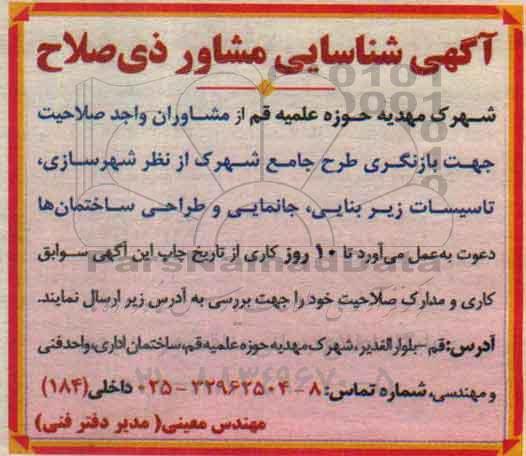 آگهی شناسایی مشاور ذی‌صلاح
شهرک مهدیه حوزه علمیه قم از مشاوران واجد صلاحیت
جهت بازنگری طرح جامع شهرک از نظر شهرسازی،
تاسیسات زیر بنایی، جانمایی و طراحی ساختمان‌ها
دعوت به‌عمل می‌آورد تا ۱۰ روز کاری از تاریخ چاپ این آگهی سوابق
کاری و مدارک صلاحیت خود را جهت بررسی به آدرس زیر ارسال نمایند.
آدرس: قم - بلوار الغدیر، شهرک مهدیه حوزه علمیه قم، ساختمان اداری، واحد فنی
و مهندسی، شماره تماس: ۸ - ۳۲۹۶۲۵۰۴ - ۰۲۵ داخلی (۱۸۴)
مهندس معینی (مدیر دفتر فنی)
ParsNamadData